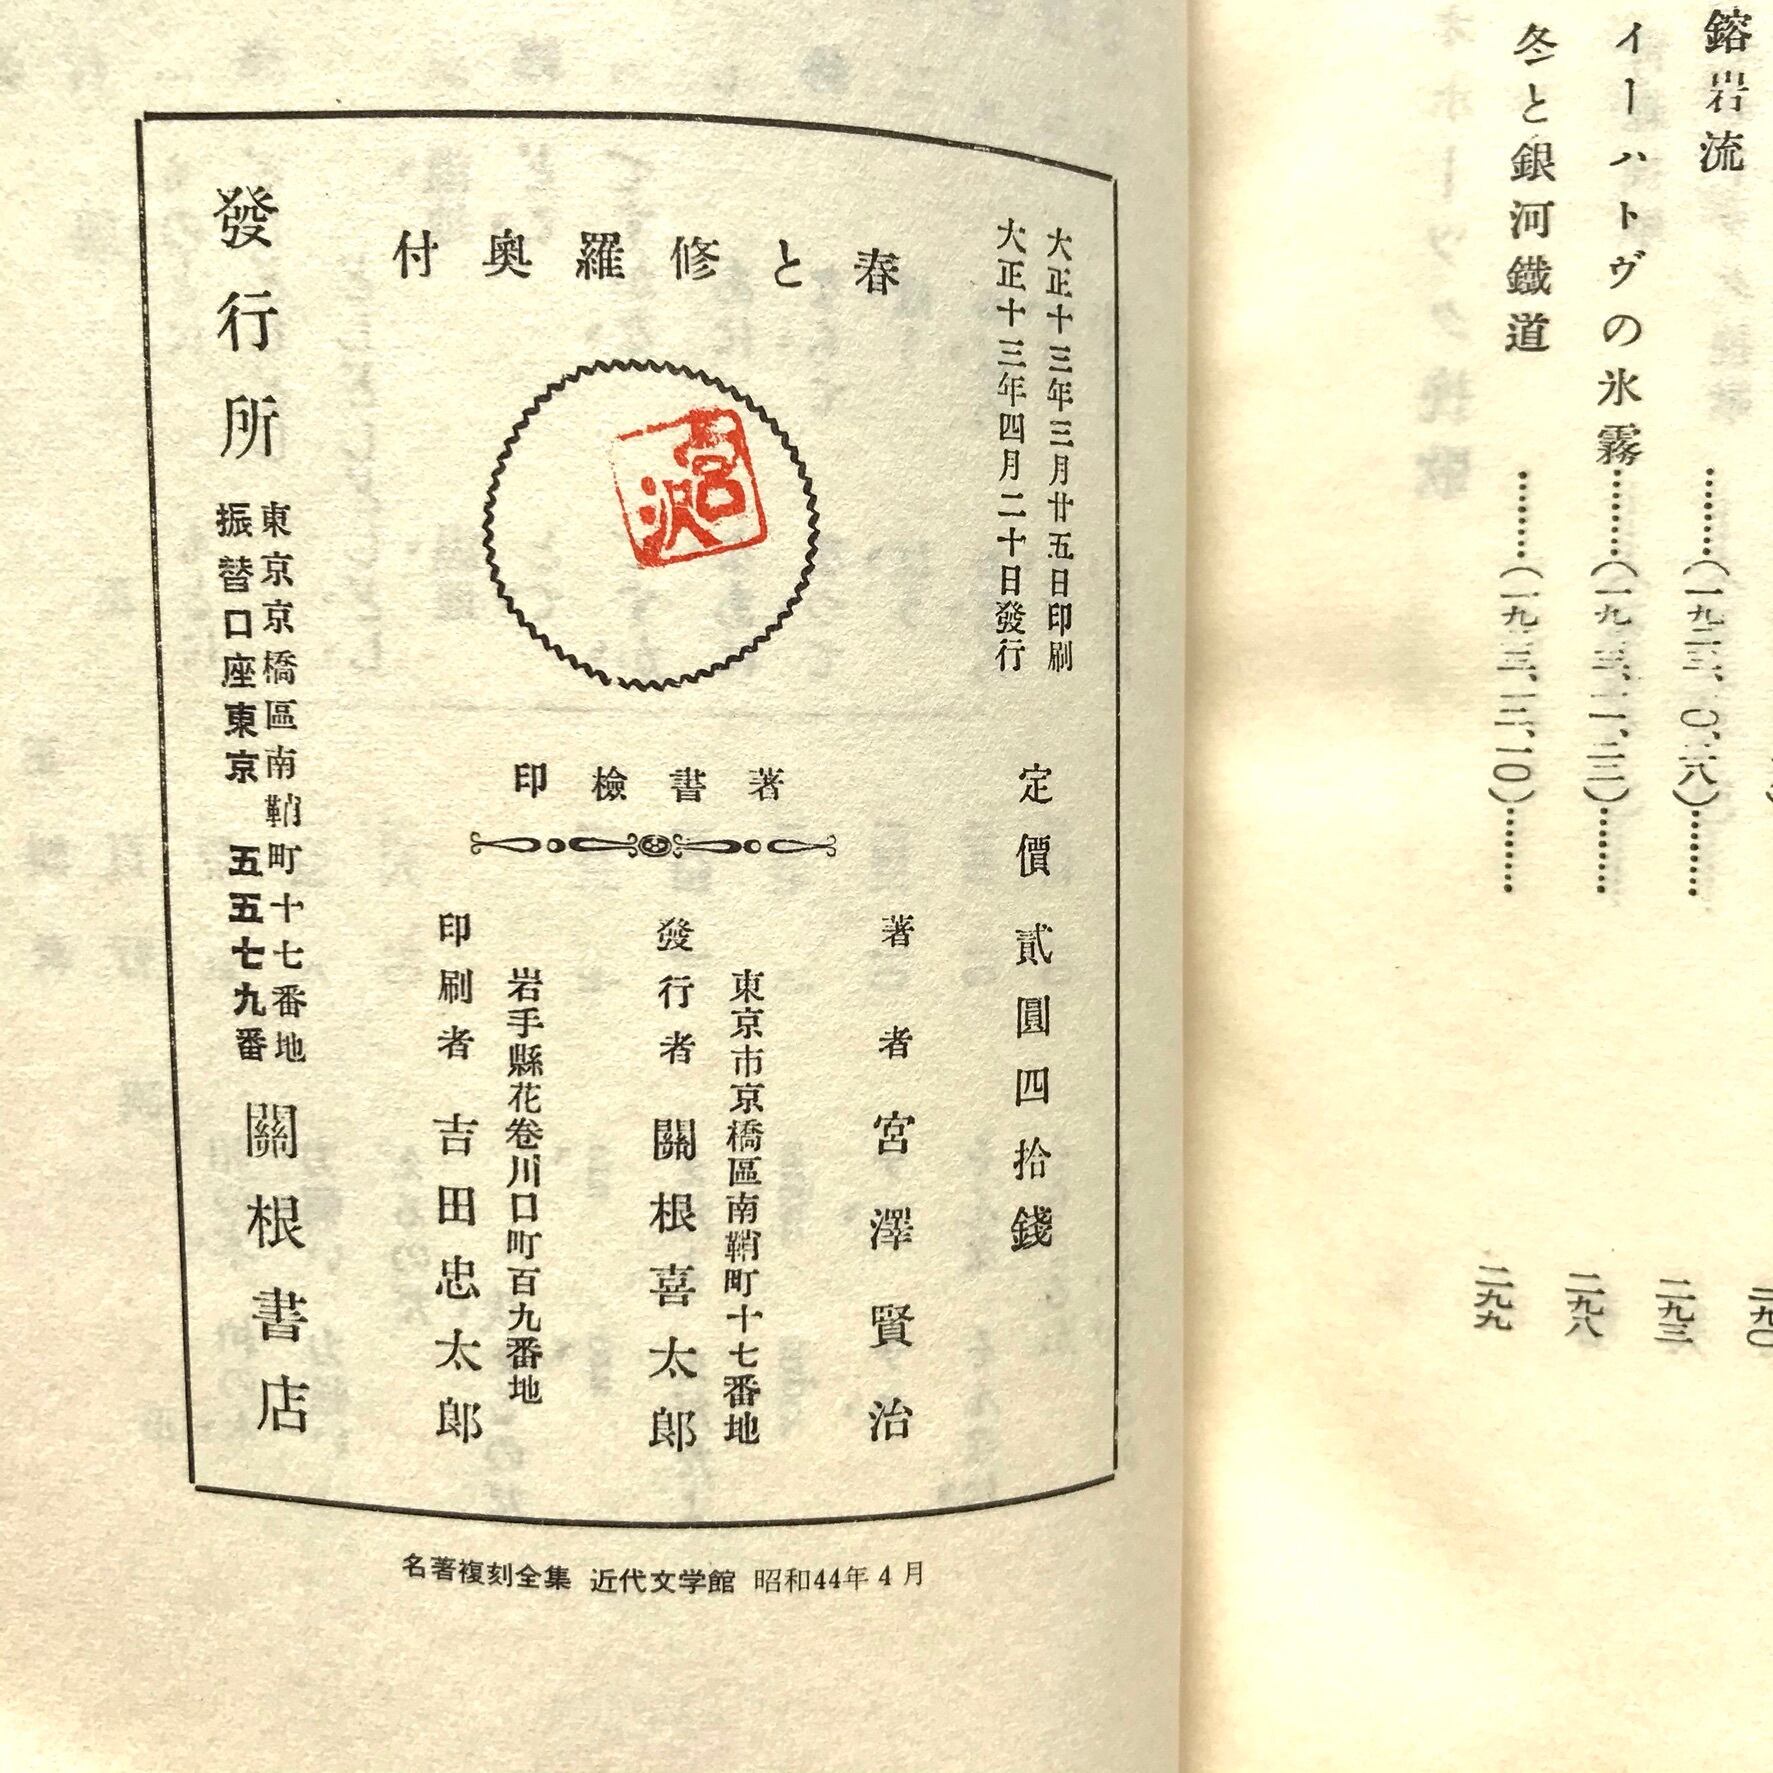 鎔岩流………(一九二三、一〇、二八)………二九三
イーハトヴの氷霧………(一九二三、一一、二二)………二九八
冬と銀河鐵道………(一九二三、一二、一〇)………二九九
大正十三年三月廿五日印刷
大正十三年四月二十日發行
定價貳圓四拾錢
春と修羅奥付
宮沢
著書檢印
著者 宮澤賢治
東京市京橋區南鞘町十七番地
發行者 關根喜太郎
岩手縣花巻川口町百九番地
印刷者 吉田忠太郎
發行所
東京京橋區南鞘町十七番地
振替口座東京五五七九番
關根書店
名著複刻全集 近代文学館 昭和44年4月